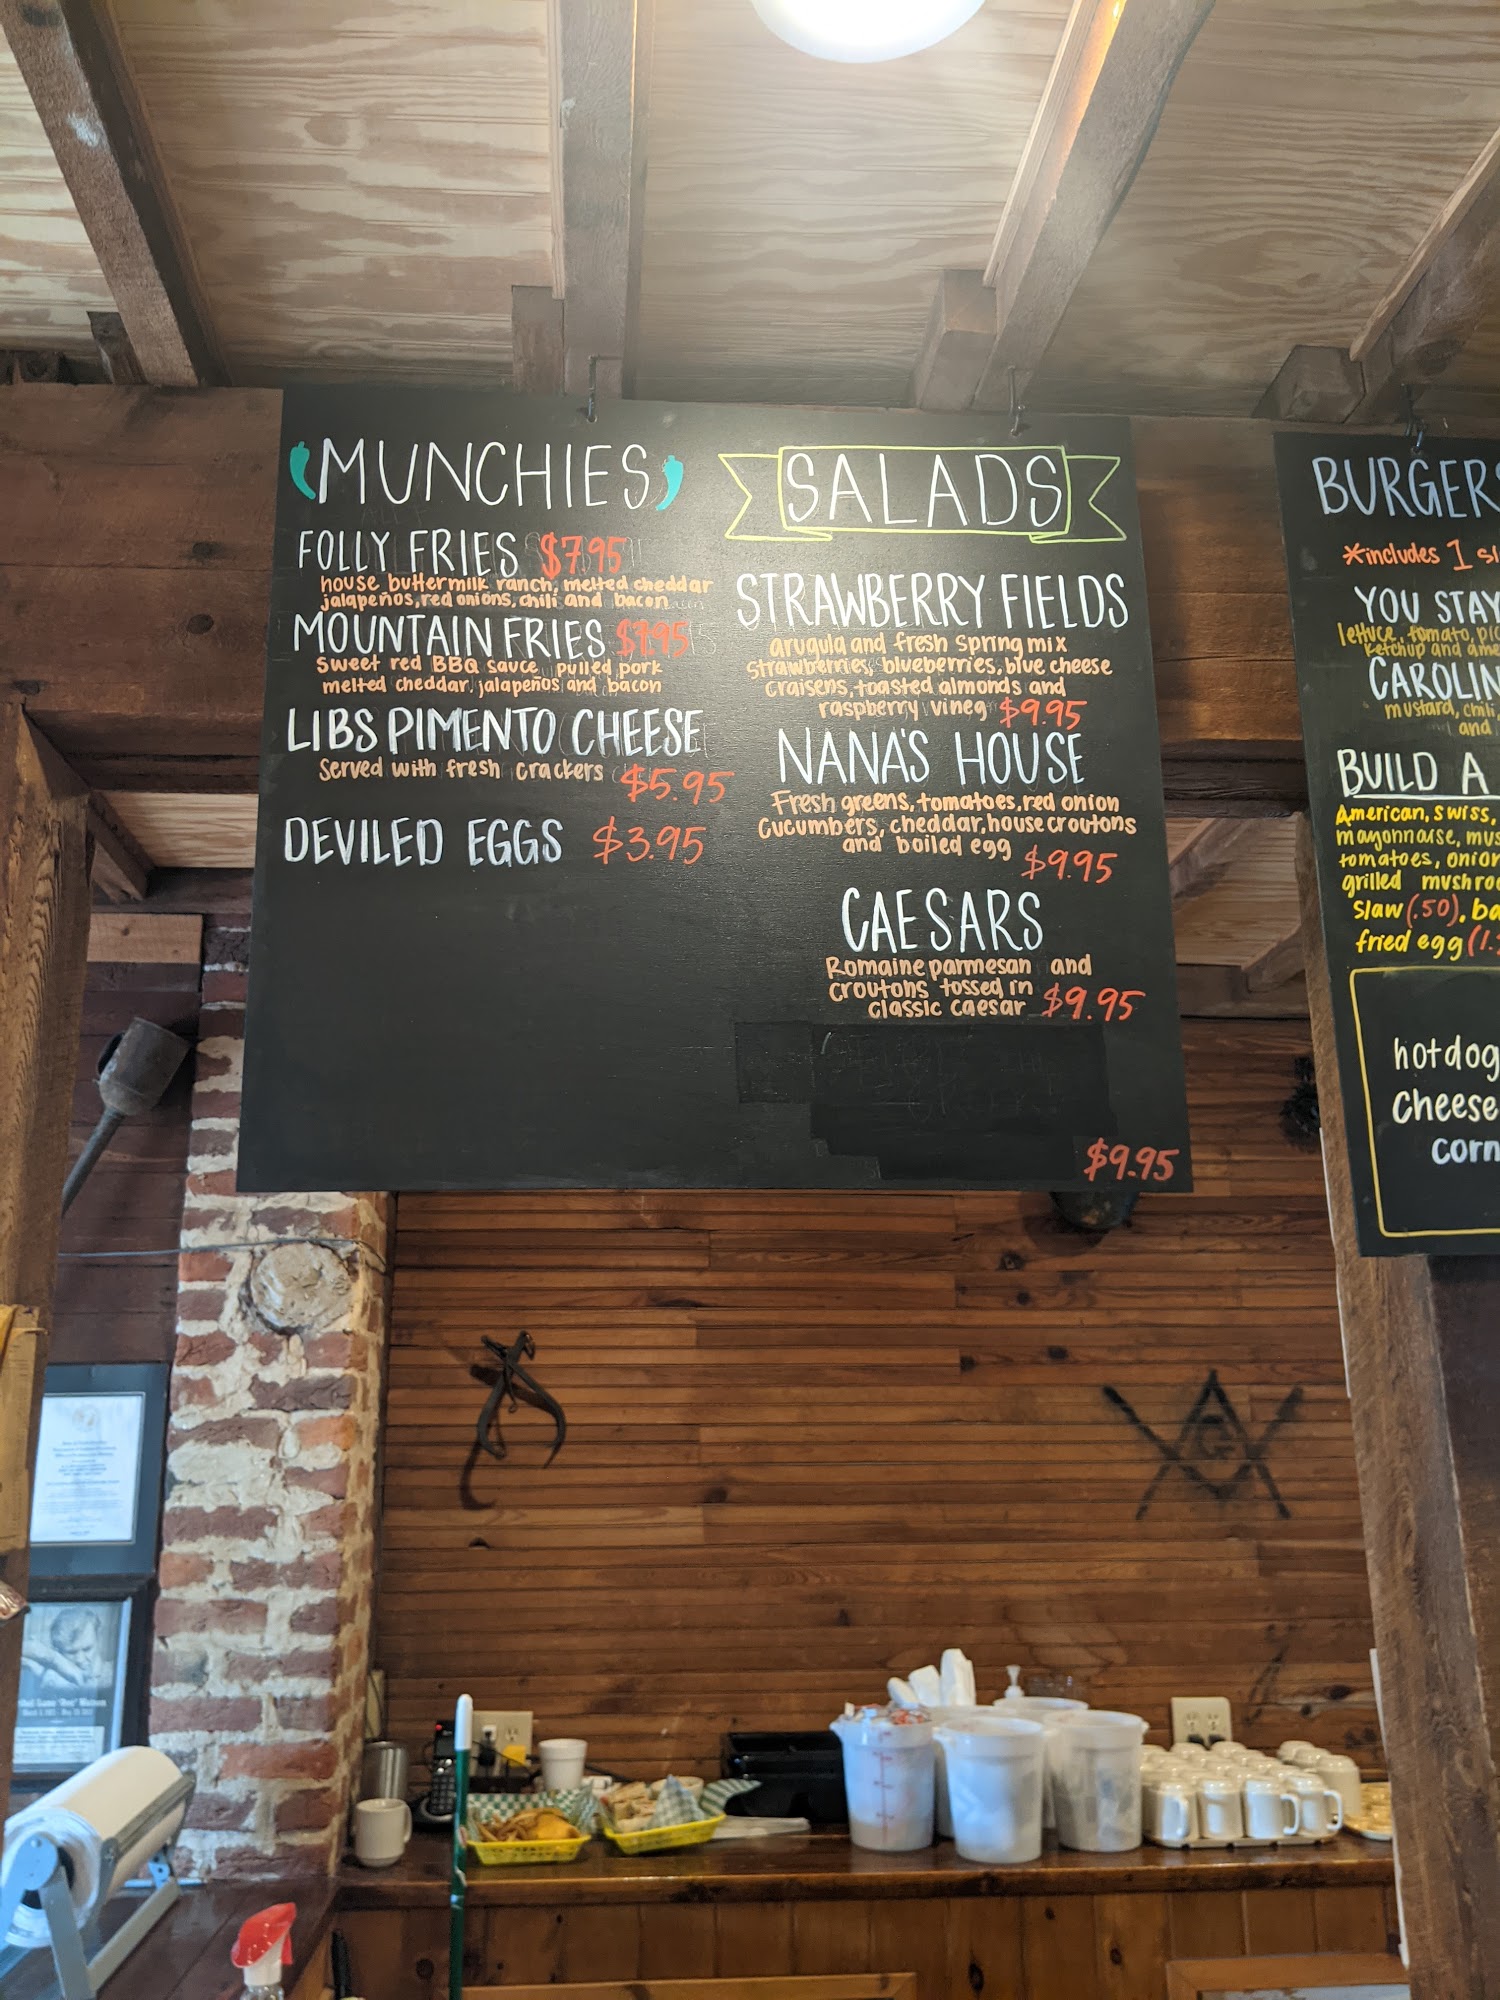 MUNCHIES
FOLLY FRIES $7.95
house buttermilk ranch, melted cheddar
jalapeños, red onions, chili and bacon
MOUNTAIN FRIES $7.95
sweet red BBQ sauce pulled pork
melted cheddar, jalapeños and bacon
LIBS PIMENTO CHEESE
Served with fresh crackers $5.95
DEVILED EGGS $3.95
SALADS
STRAWBERRY FIELDS
arugula and fresh spring mix
strawberries, blueberries, blue cheese
craisens, toasted almonds and
raspberry vineg $9.95
NANA'S HOUSE
Fresh greens, tomatoes, red onion
cucumbers, cheddar, house croutons
and boiled egg $9.95
CAESARS
Romaine parmesan and
croutons tossed in
classic caesar $9.95
$9.95
BURGERS
*includes 1
YOU STAY
lettuce, tomato,
ketchup and
CAROLIN
mustard, chili,
and
BUILD A
American, swiss,
mayonnaise,
tomatoes, onion
grilled
slaw (.50),
fried egg
hotdog
Cheese
corn